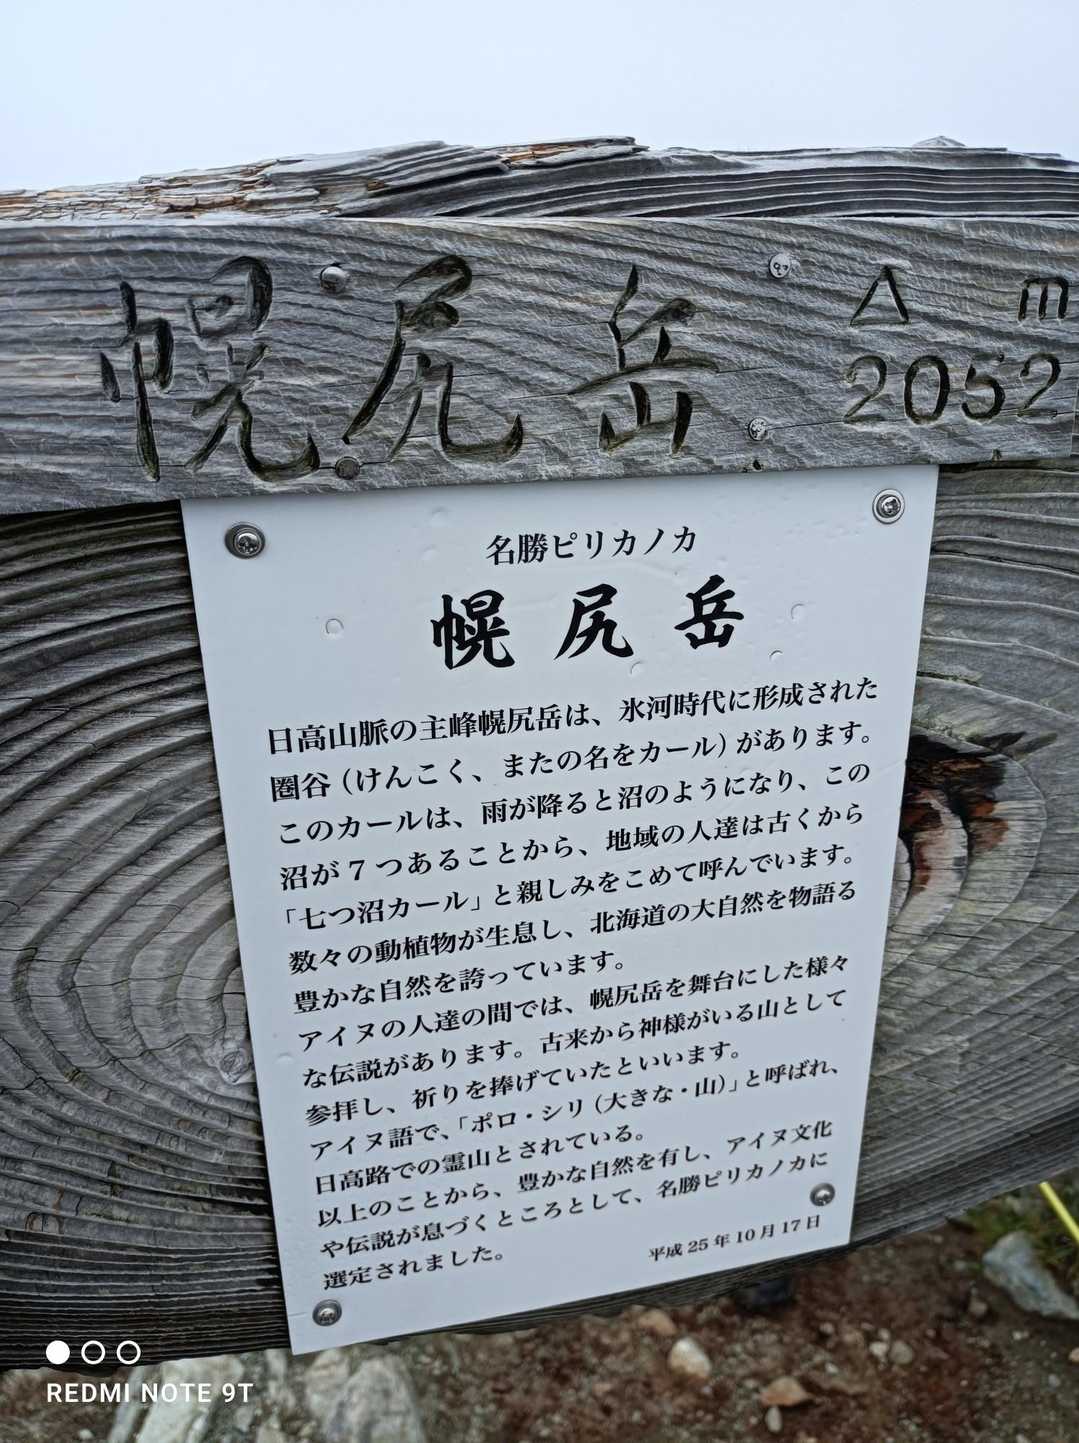 幌尻岳 △ m
2052
名勝ピリカノカ
幌尻岳
日高山脈の主峰幌尻岳は、氷河時代に形成された
圏谷（けんこく、またの名をカール）があります。
このカールは、雨が降ると沼のようになり、この
沼が７つあることから、地域の人達は古くから
「七つ沼カール」と親しみをこめて呼んでいます。
数々の動植物が生息し、北海道の大自然を物語る
豊かな自然を誇っています。
アイヌの人達の間では、幌尻岳を舞台にした様々
な伝説があります。古来から神様がいる山として
参拝し、祈りを捧げていたといいます。
アイヌ語で、「ポロ・シリ（大きな・山）」と呼ばれ、
日高路での霊山とされている。
以上のことから、豊かな自然を有し、アイヌ文化
や伝説が息づくところとして、名勝ピリカノカに
選定されました。
平成25年10月17日
REDMI NOTE 9T